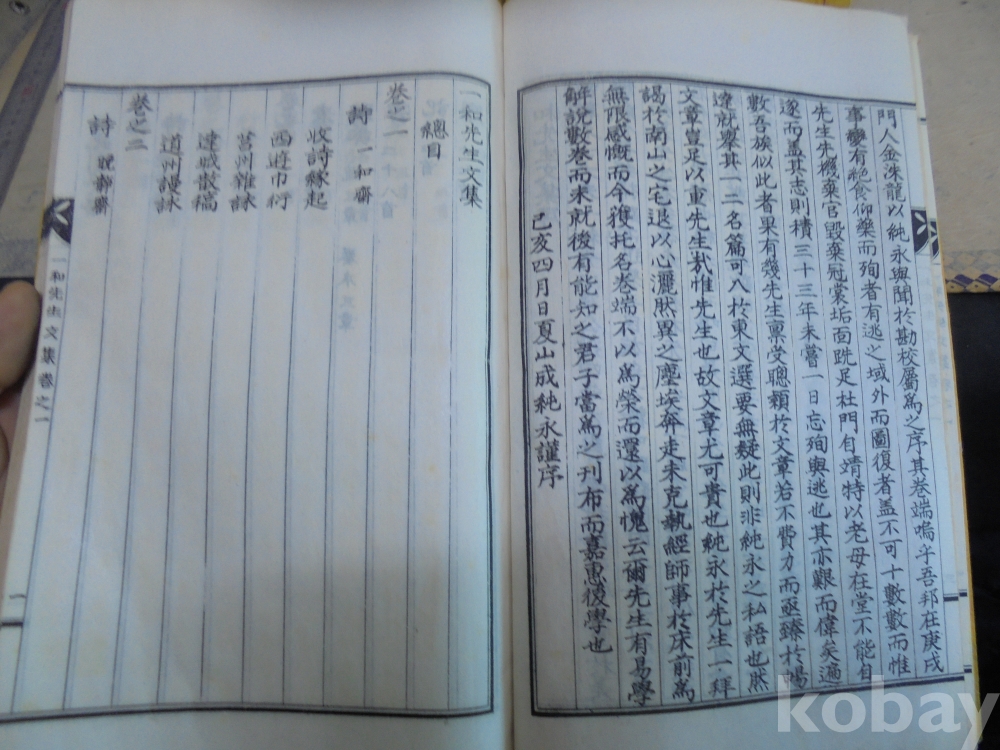 門人金洙龍以純永與聞於勘校屬爲之序其卷端嗚乎吾邦在庚戌
事變有絕食仰藥而殉者有逃之域外而圖復者盖不可十數數而惟
先生先機棄官毀棄冠裳垢面跣足杜門自靖特以老母在堂不能自
遂而盖其志則積三十三年未嘗一日忘殉與逃也其亦艱而偉矣遍
數吾族似此者果有幾先生禀受聰頴於文章若不費力而亟臻於暢
達就擧其一二名篇可入於東文選要無疑此則非純永之私語也然
文章豈足以重先生哉惟先生也故文章尤可貴也純永於先生一拜
謁於南山之宅退以心灑然異之塵埃奔走未克執經師事於床前爲
無限感慨而今獲托名卷端不以爲榮而還以爲愧云爾先生有易學
解說數卷而未就後有能知之君子當爲之刊布而嘉惠後學也
己亥四月日夏山成純永謹序
一和先生文集
總目
卷之一
詩 一和齋
收詩緣起
西遊巾衍
莒州雜詠
達城散稿
道州謾詠
卷之二
詩 晩靜齋
一和先生文集卷之一
一
kobay